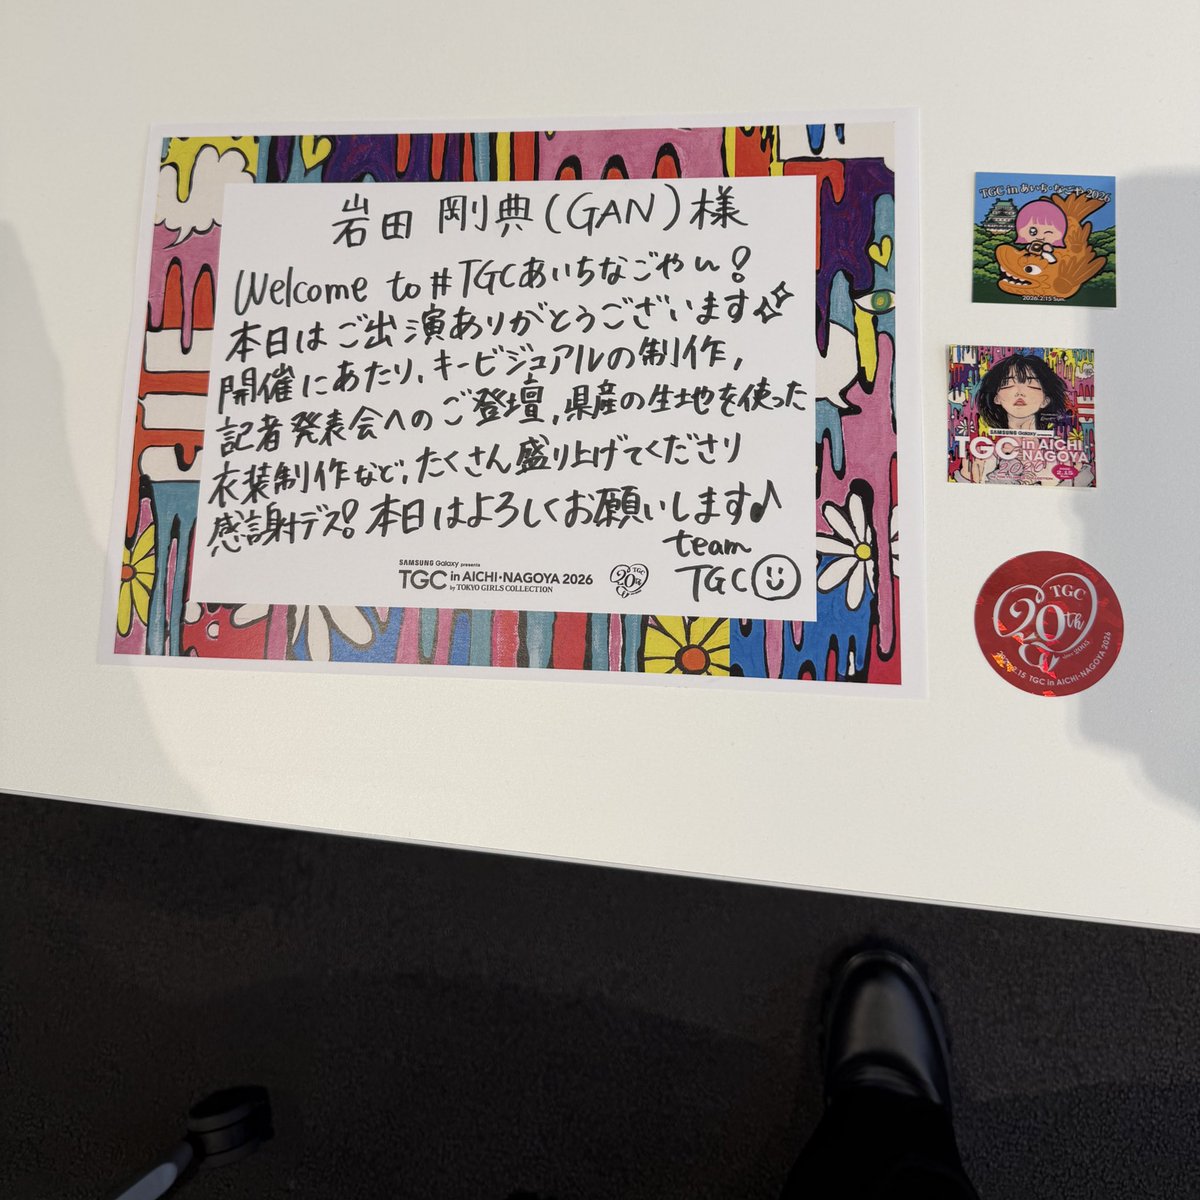 岩田 剛典(GAN)様
Welcome to #TGCあいちなごやん!
本日はご出演ありがとうございます
開催にあたり、キービジュアルの制作,
記者発表会へのご登壇,県産の生地を使った
衣装制作など,たくさん盛り上げてくださり
感謝デス! 本日はよろしくお願いします♪
team
TGC
SAMSUNG Galaxy presents
TGC in AICHI・NAGOYA 2026
by TOKYO GIRLS COLLECTION
TGC
20th
TGC in あいち・なごや 2026
2026.2.15 Sun.
SAMSUNG Galaxy
TGC in AICHI
NAGOYA
2026
2.15
TGC
20th
since 2005
2026.2.15 TGC in AICHI・NAGOYA 2026